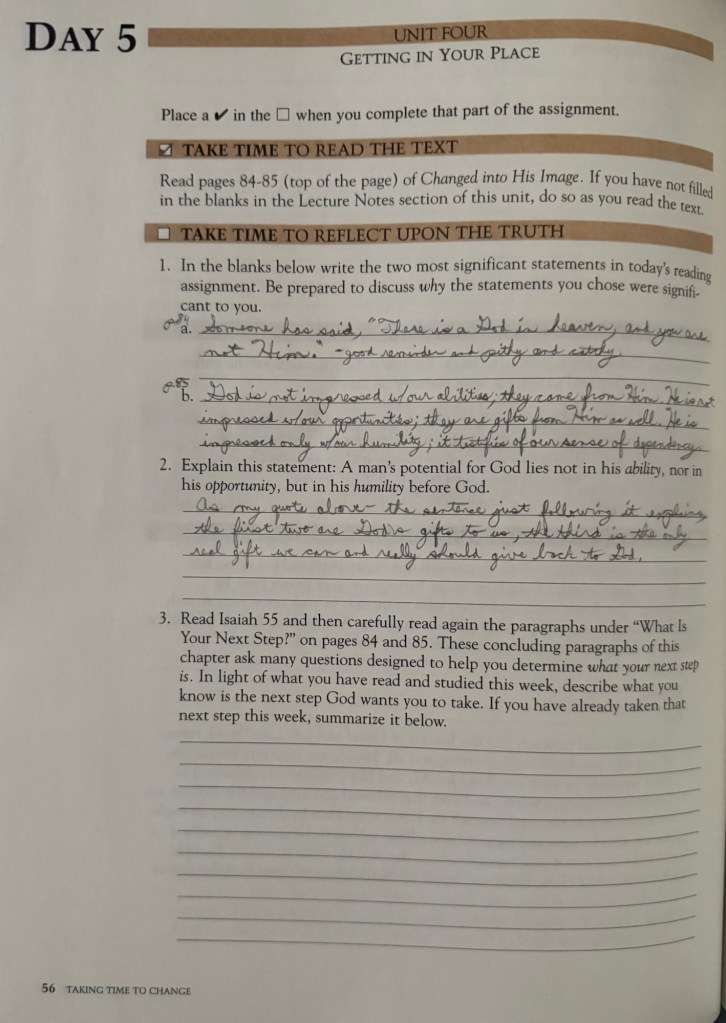 DAY 5
UNIT FOUR
GETTING IN YOUR PLACE
Place a ✔ in the ☐ when you complete that part of the assignment.
☑ TAKE TIME TO READ THE TEXT
Read pages 84-85 (top of the page) of Changed into His Image. If you have not filled
in the blanks in the Lecture Notes section of this unit, do so as you read the text.
☐ TAKE TIME TO REFLECT UPON THE TRUTH
1. In the blanks below write the two most significant statements in today's reading
assignment. Be prepared to discuss why the statements you chose were signifi-
cant to you.
p84
a. Someone has said, "There is a God in heaven, and you are
not Him." - good reminder and pithy and catchy
p85
b. God is not impressed w/our abilities; they come from Him. He is not
impressed w/our opportunities; they are gifts from Him as well. He is
impressed only w/our humility; it testifies of our sense of dependency.
2. Explain this statement: A man's potential for God lies not in his ability, nor in
his opportunity, but in his humility before God.
As my quote above - the sentence just following it explains,
the first two are God's gifts to us, the third is the only
real gift we can and really should give back to God.
3. Read Isaiah 55 and then carefully read again the paragraphs under "What Is
Your Next Step?" on pages 84 and 85. These concluding paragraphs of this
chapter ask many questions designed to help you determine what your next step
is. In light of what you have read and studied this week, describe what you
know is the next step God wants you to take. If you have already taken that
next step this week, summarize it below.
56 TAKING TIME TO CHANGE